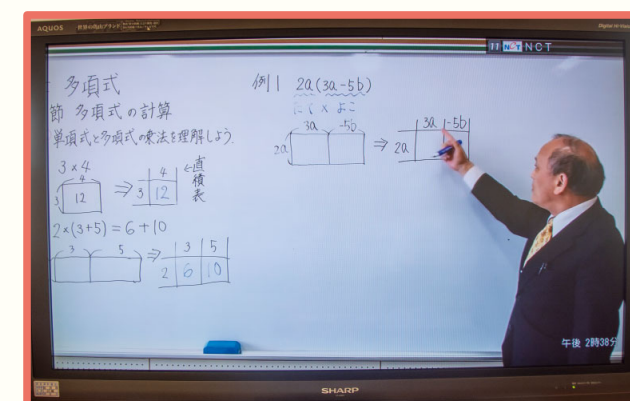 AQUOS
11 NCT NCT
多項式
節 多項式の計算
単項式と多項式の乗法を理解しよう.
3×4
4
3
12
⇒
4
3
12
←直積表
2×(3+5)=6+10
3
5
⇒
3
5
2
6
10
例1 2a(3a-5b)
たて×よこ
3a
-5b
2a
⇒
3a
-5b
2a
午後 2時38分
SHARP